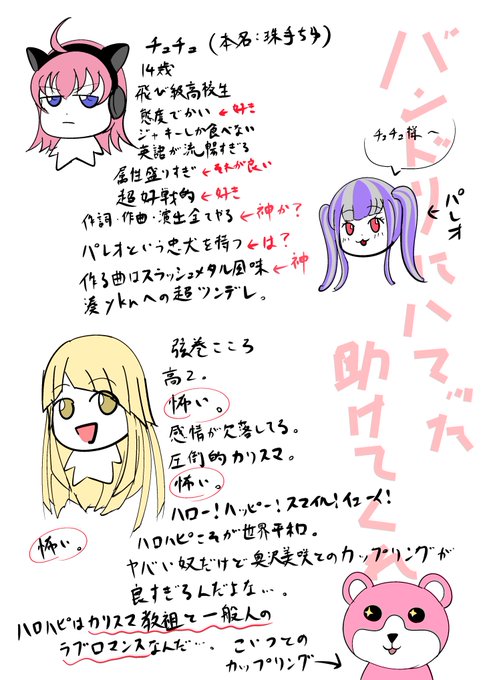 バンドリにハマでた
助けてくれ
チュチュ(本名:珠手ちゆ)
14歳
飛び級高校生
態度でかい←好き
ジャーキーしか食べない
英語が流暢すぎる
属性盛りすぎ←それが良い
超好戦的←好き
作詞・作曲・演出全てやる←神か?
パレオという忠犬を持つ←は?
作る曲はスラッシュメタル風味←神
湊yknへの超ツンデレ。
チュチュ様へ
←パレオ
弦巻こころ
高2。
怖い。
感情が欠落してる。
圧倒的カリスマ。
怖い。
ハロー!ハッピー!スマイル!イェーイ!
ハロハピこそが世界平和。
怖い。
ヤバい奴だけど奥沢美咲とのカップリングが
良すぎるんだよな…。
ハロハピはカリスマ教祖と一般人の
ラブロマンスなんだ…。
こいつとの
カップリング→